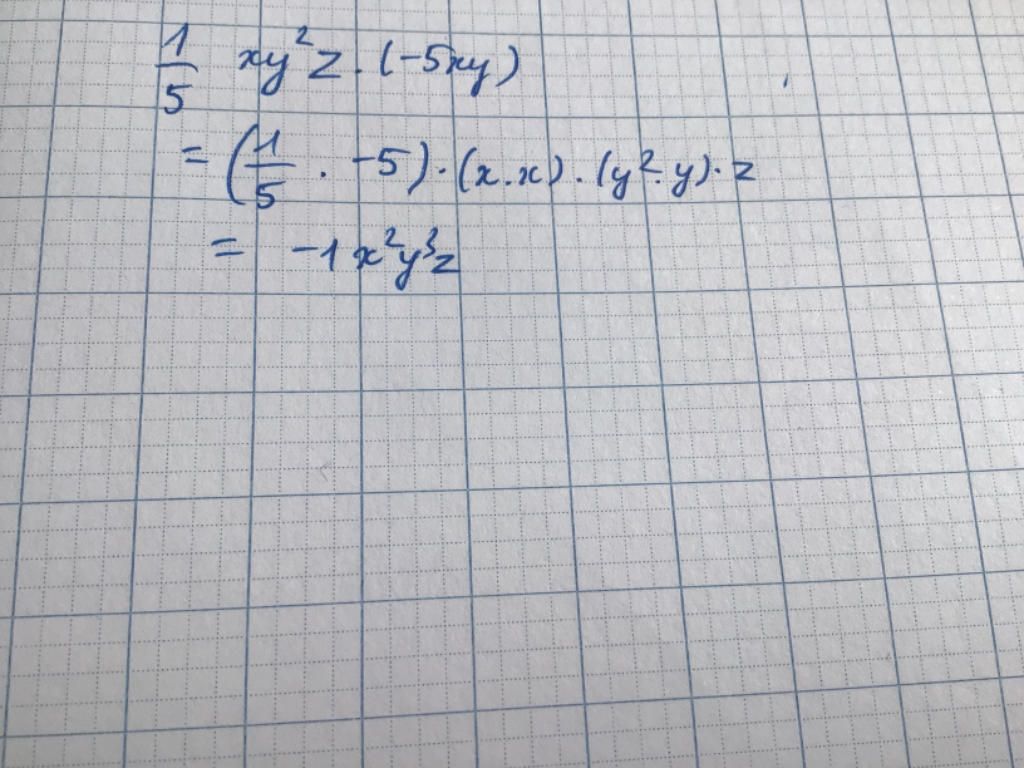 1/5 xy²z.(-5xy)
= (1/5 . -5).(x.x).(y².y).z
= -1x²y³z